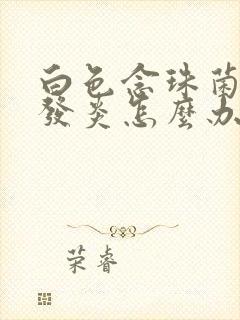 白色念珠菌
發炎怎麼办
荣睿